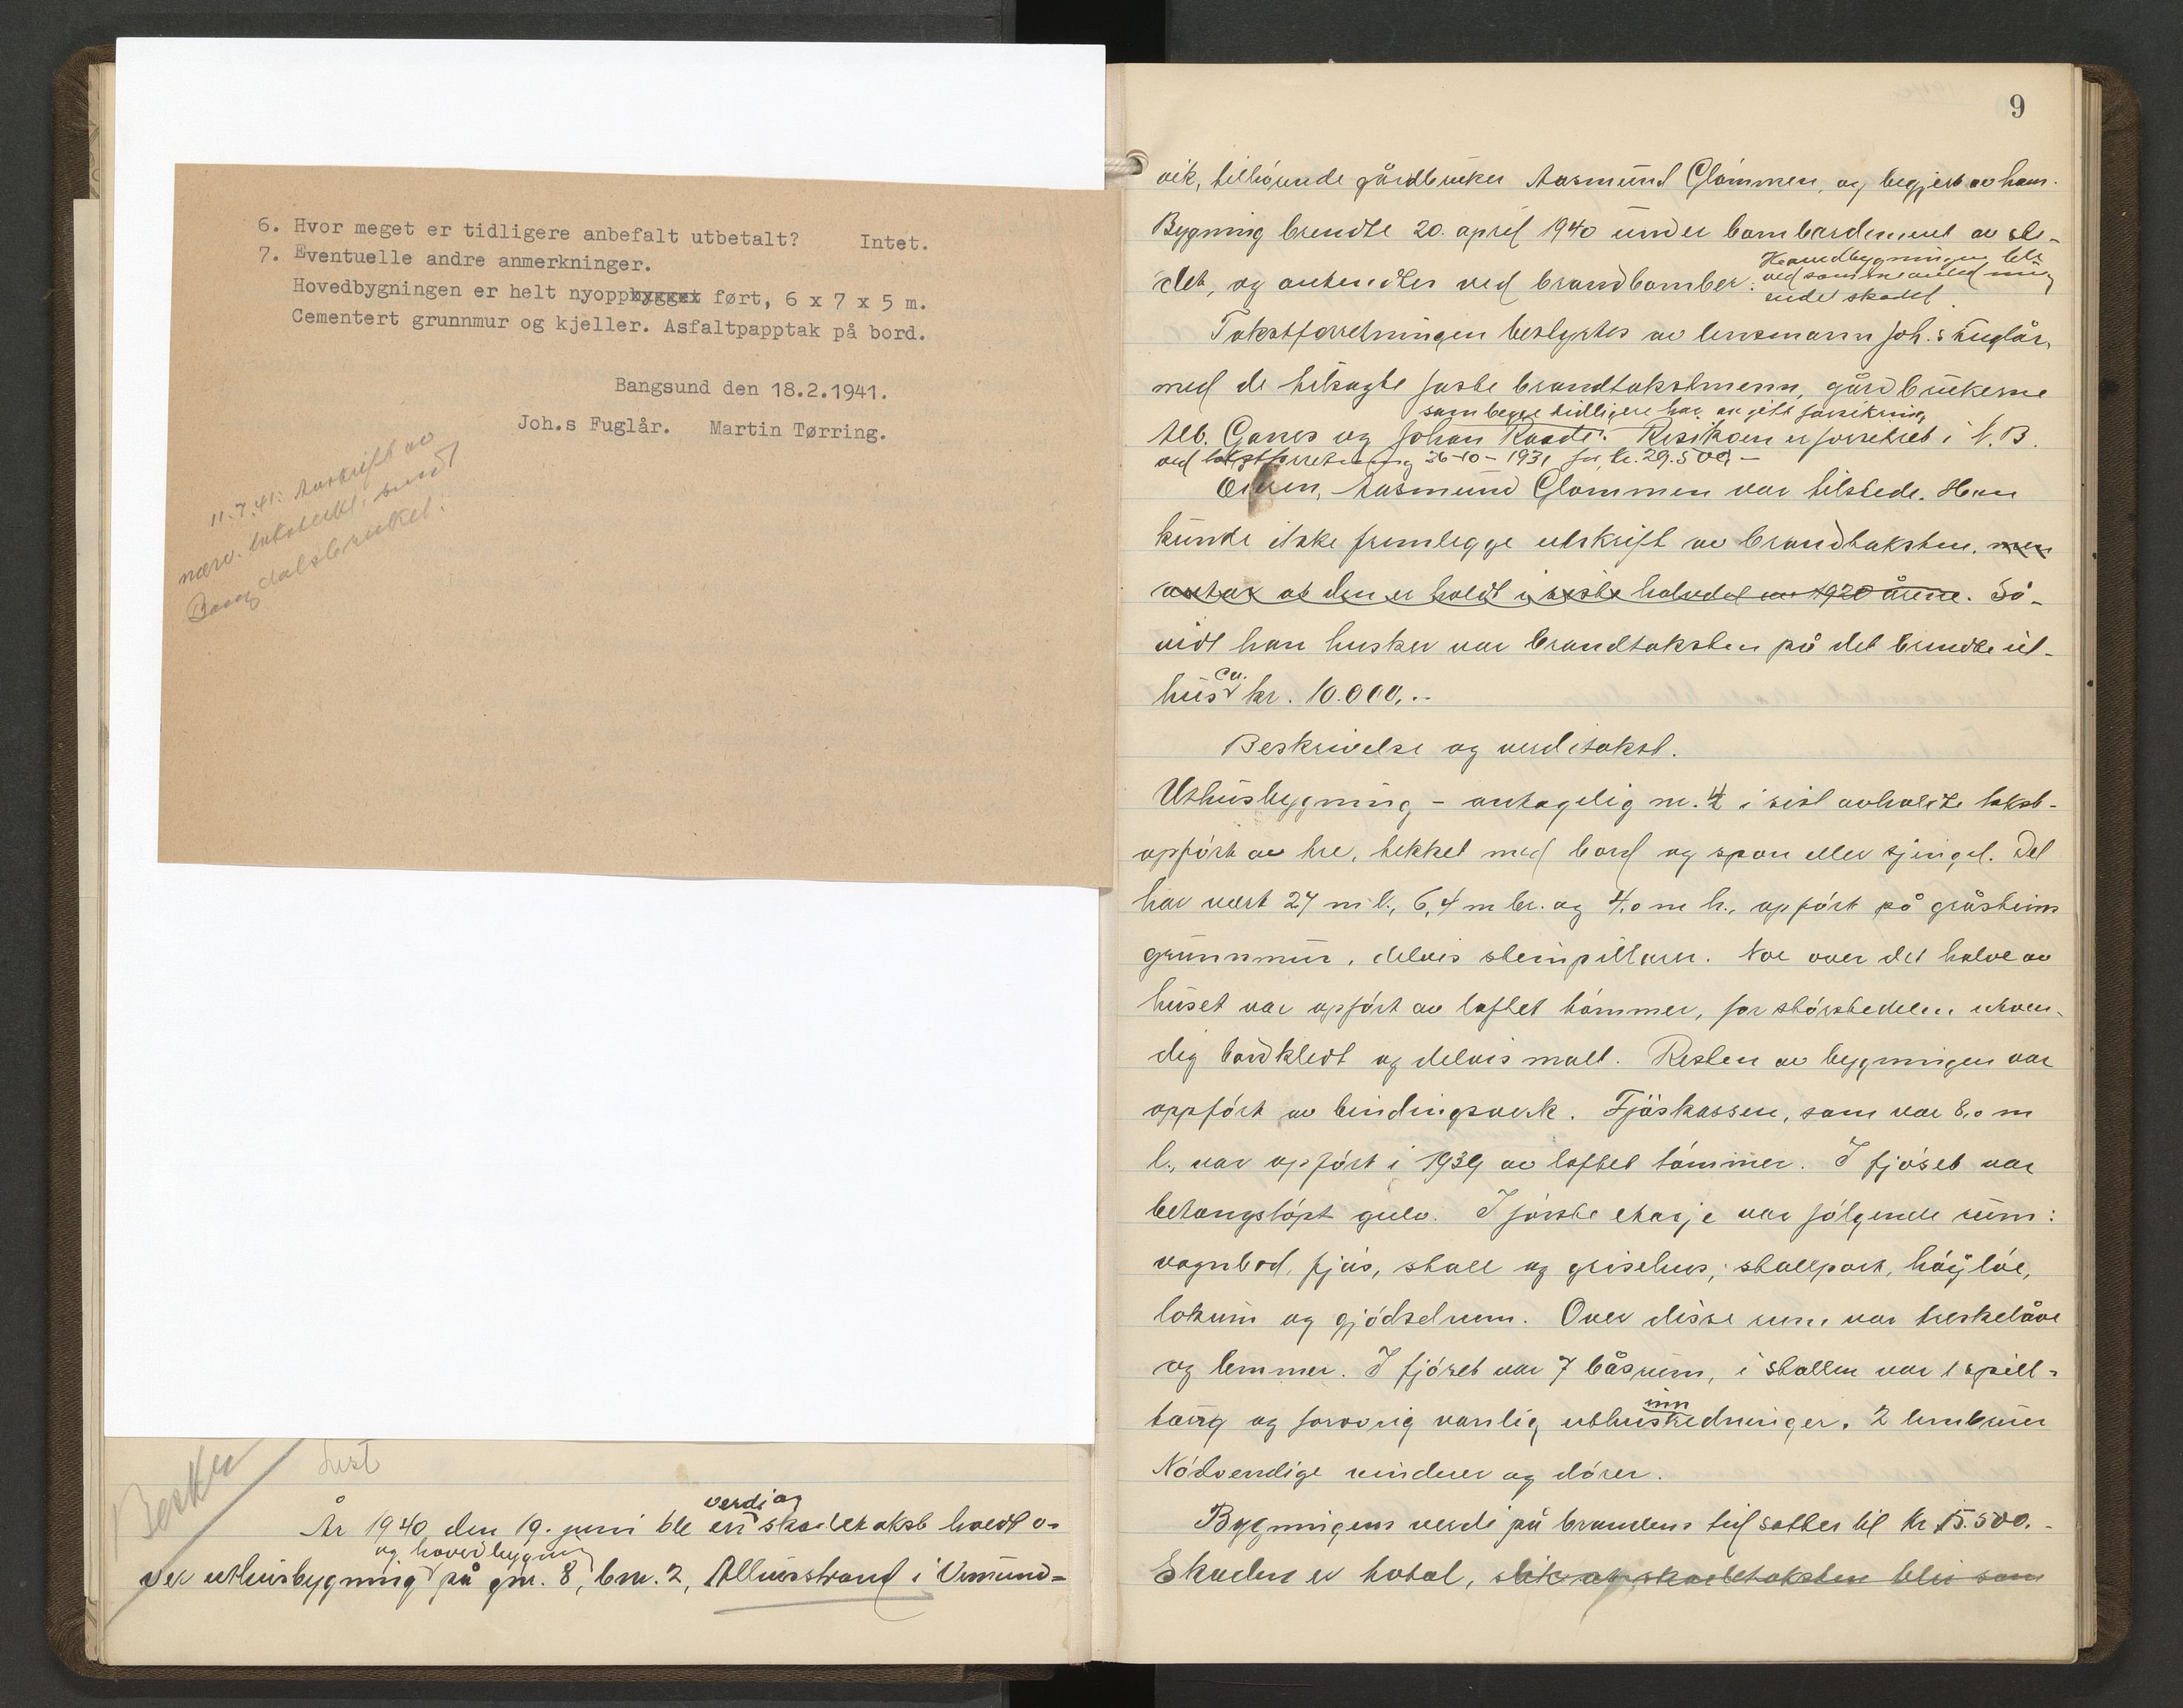 6. Hvor meget er tidligere anbefalt utbetalt? Intet.
7. Eventuelle andre anmerkninger.
Hovedbygningen er helt nyoppbygget ført, 6 x 7 x 5 m.
Cementert grunnmur og kjeller. Asfaltpapptak på bord.
Bangsund den 18.2.1941.
Joh.s Fuglår. Martin Tørring.
11.7.41: Avskrift av
nærv. takst sendt
Bangdalsbruket.
År 1940 den 19. juni ble en verdi og skadetakst holdt o-
ver uthusbygning og hovedbygning på gnr. 8, bnr. 2, Alhusstrand i Vemund-
9
vik, tilhørende gårdbruker Aasmund Glømmen, og begjert av ham.
Bygning brendte 20. april 1940 under bombardement av ste-
det, og antendtes ved brandbomber. Hovedbygningen ble
ved samme anled ning
endel skadet.
Takstforretningen bestyrtes av lensmann Joh.s Fuglår,
med de tilsagte faste brandtakstmenn, gårdbrukerne
som begge tidligere har avgitt forsikring
Alb. Ganes og Johan Raade. Resikoen er forsikret i N.B.
ved takstforretning 26-10-1931 for kr. 29.500,-
Eieren, Aasmund Glømmen var tilstede. Han
kunde ikke fremlegge utskrift av brandtaksten, men
antar at den er holdt i siste halvdel av 1920 årene. Så-
vidt han husker var brandtaksten på det brendte ut-
hus ca. kr. 10.000,--
Beskrivelse og verditakst.
Uthusbygning - antagelig nr. 4 i sist avholdte takst-
opført av tre, tekket med bord og spon eller sjingel. Det
har vært 27 m l., 6,4 m br. og 4,0 m h., opført på gråsteins
grunnmur, delvis steinpillarer. Noe over det halve av
huset var opført av laftet tømmer, for størstedelen utven-
dig bordkledt og delvis malt. Resten av bygningen var
oppført av bindingsverk. Fjøskassen, som var 8,0 m
l., var opført i 1939 av laftet tømmer. I fjøset var
betongstøpt gulv. I første etasje var følgende rum:
vognbod, fjøs, stall og grisehus, stallport, høyløe,
lokum og gjødselrum. Over disse rum var treskelåve
og lemmer. I fjøset var 7 båsrum, i stallen var 1 spill-
taug og forøvrig vanlig uthusinnredninger. 2 lembruer
Nødvendige vinduer og dører.
Bygningens verdi på brandens tid settes til kr 15.500.-
Skaden er total, slik at skadetaksten blir som